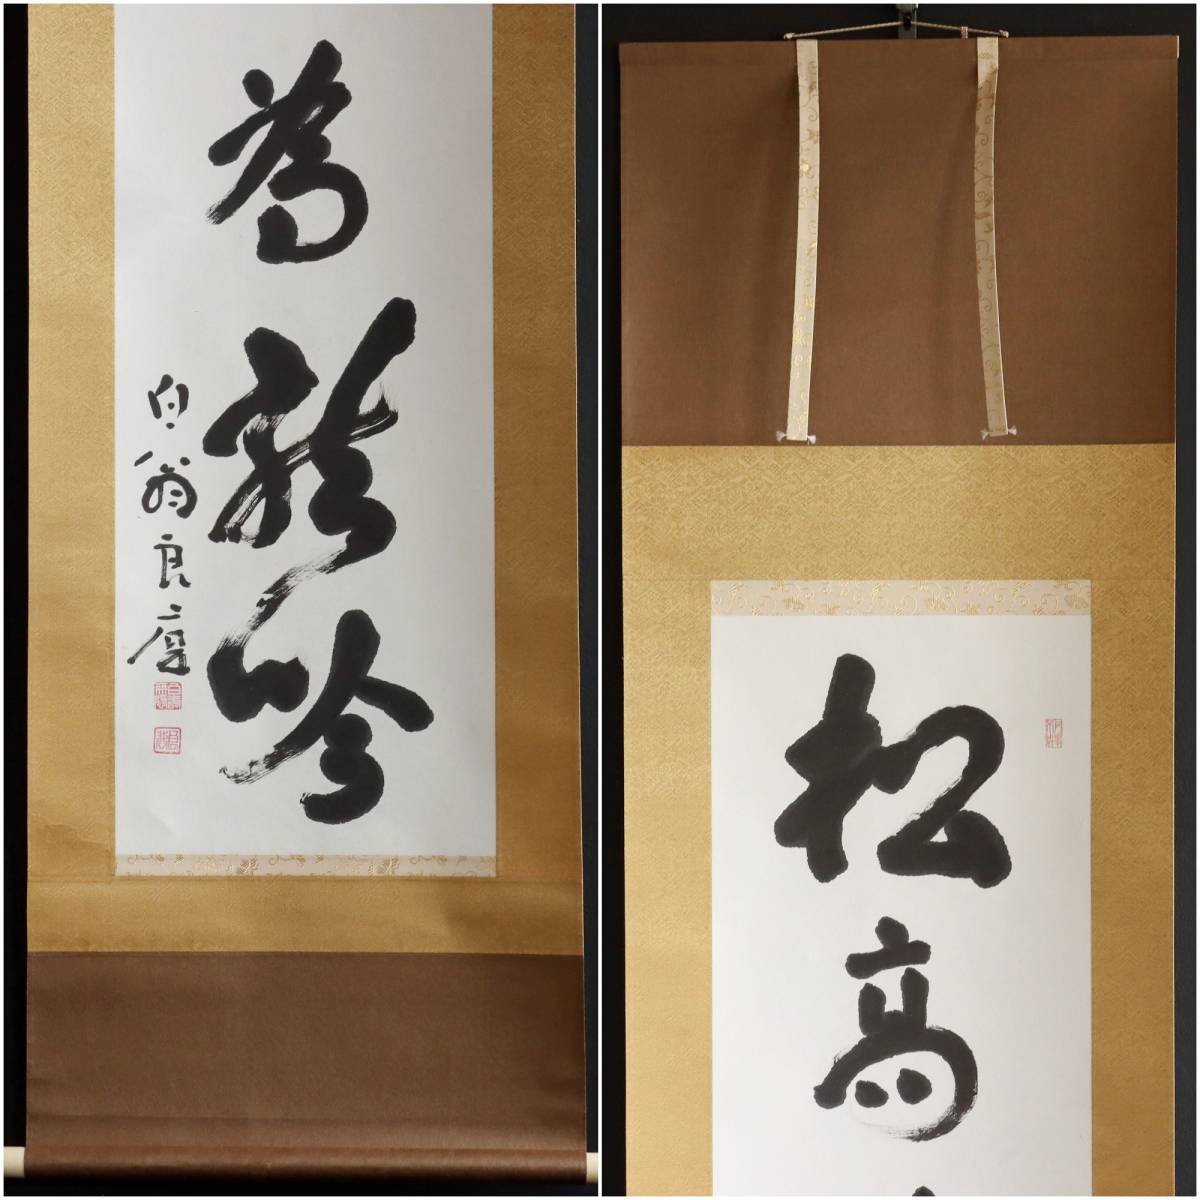 松高
為龍吟
白翁良